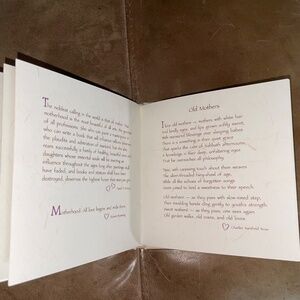 The noblest calling in the world is that of mother. True
motherhood is the most beautiful of all arts, the greatest
of all professions. She who can paint a masterpiece or
who can write a book that will influence millions deserves
the plaudits and admiration of mankind; but she who
rears successfully a family of healthy, beautiful sons and
daughters whose immortal souls will be exerting an
influence throughout the ages long after painting shall
have faded, and books and statues shall have been
destroyed, deserves the highest honor that man can give
Motherhood: All love begins and ends there.
Robert Browning
Old Mothers
I love old mothers — mothers with white hair
And kindly eyes, and lips grown softly sweet,
With murmured blessings over sleeping babes
There is a something in their quiet grace
That speaks the calm of Sabbath afternoons;
A knowledge in their deep, unfaltering eyes
That far outreaches all philosophy.
Time, with caressing touch about them weaves
The silver-threaded fairy-shawl of age,
While all the echoes of forgotten songs
Seem joined to lend a sweetness to their speech.
Old mothers! — as they pass with slow-timed step,
Their trembling hands cling gently to youth's strength.
Sweet mothers! — as they pass, one sees again
Old garden-walks, old roses, and old loves.
Charles Sarsfield Ross